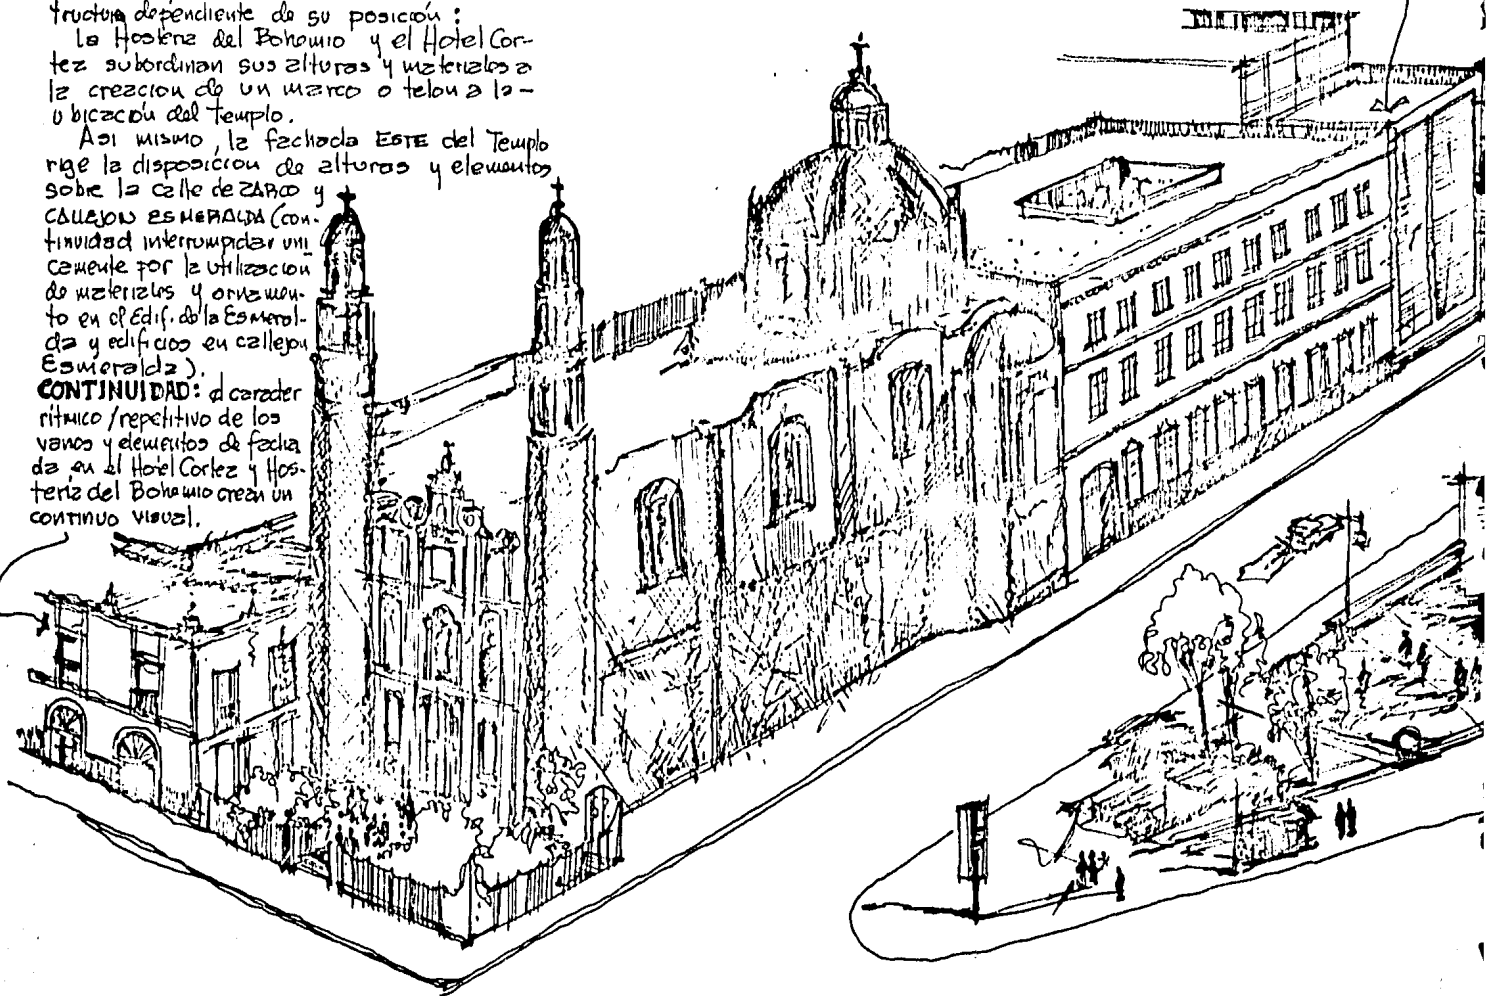 tructura dependiente de su posición:
La Hosteria del Bohemio y el Hotel Cor-
tez subordinan sus alturas y materiales a
la creacion de un marco o telon a la -
ubicación del Templo.
Asi mismo, la fachada ESTE del Templo
rige la disposicion de alturas y elementos
sobre la calle de ZARCO y
CALLEJON ESMERALDA (con-
tinuidad interrumpida uni
camente por la utilizacion
de materiales y ornamen-
to en el Edif. de la Esmeral-
da y edificios en callejon
Esmeralda).
CONTINUIDAD: el caracter
rítmico / repetitivo de los
vanos y elementos de facha
da en el Hotel Cortez y Hos-
teria del Bohemio crean un
continuo visual.